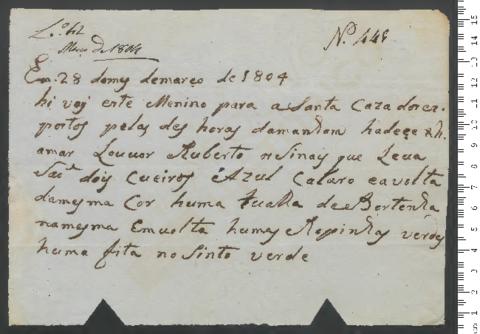 L.º 42
Março de 1804
Nº 448
Em 28 do mes de março de 1804
hi voj este Menino para a Santa Caza dos es
postos pelas des horas da manhan hade se ch
amar Roberto os sinays que Leva
São doij Cueiros Azul Calaro e a volta
da mesma Cor huma Tualha de Bertenha
na mesma Emvolta humas Repinhas verdes
huma fita no Sinto verde